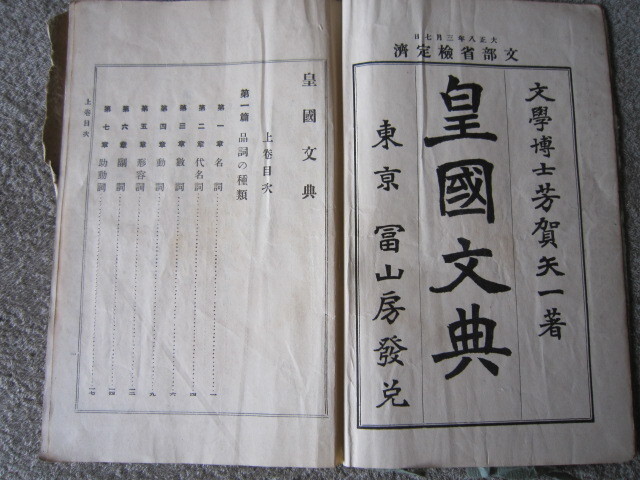 大正八年三月七日
文部省檢定濟
文學博士芳賀矢一著
皇國文典
東京 冨山房發兌
皇國文典
上卷目次
第一篇 品詞の種類
第一章 名詞 一
第二章 代名詞 四
第三章 數詞 六
第四章 動詞 九
第五章 形容詞 一二
第六章 副詞 一四
第七章 助動詞 一七
上卷目次